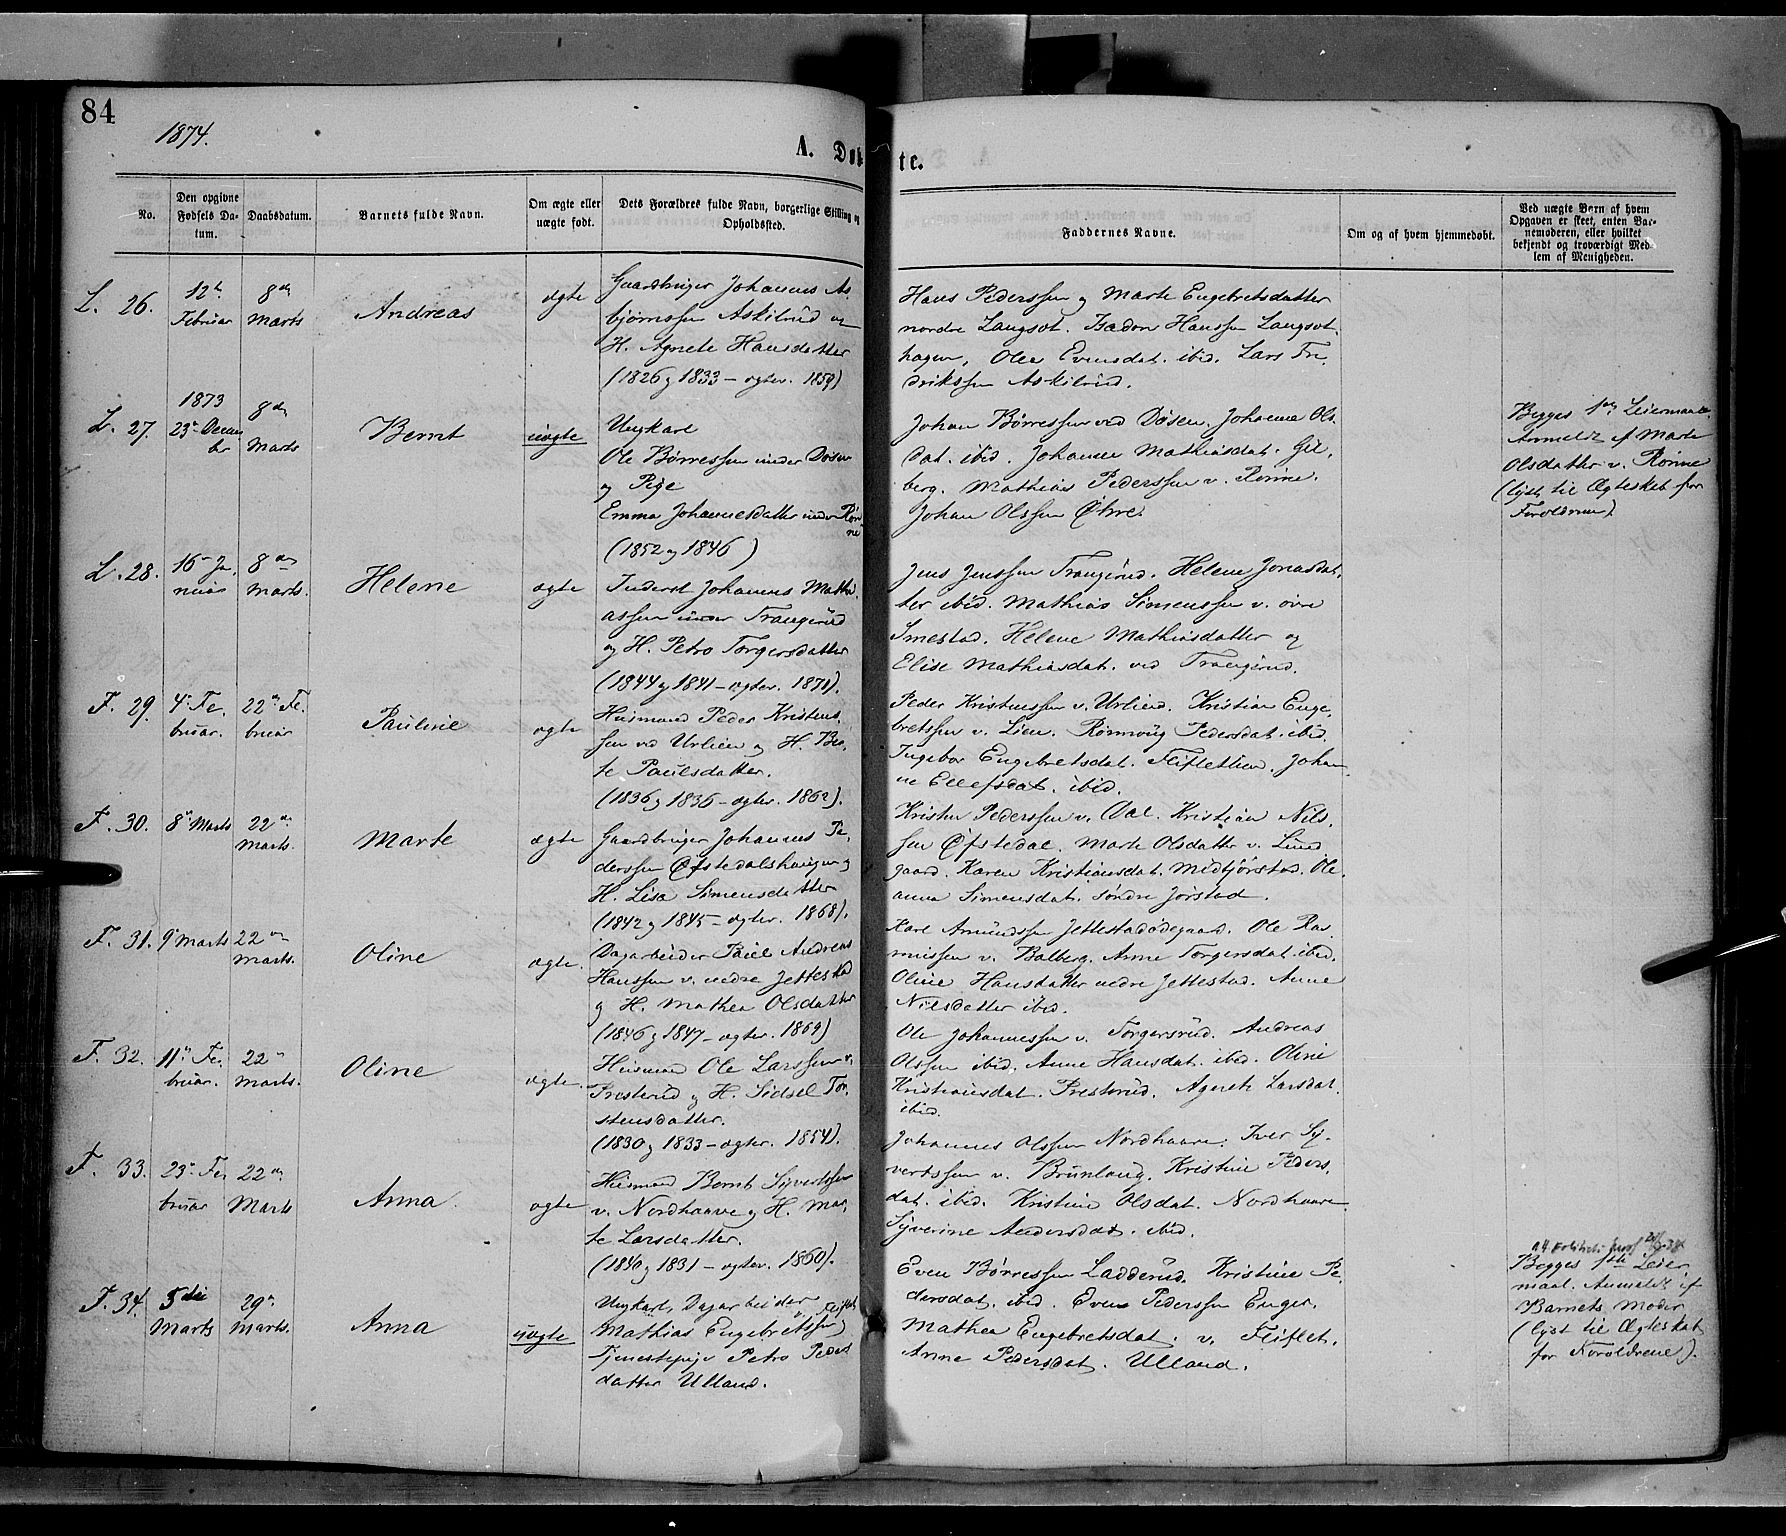 84
1874.
A. Døbte.
No.
Den opgivne Fødsels Datum.
Daabsdatum.
Barnets fulde Navn.
Om ægte eller uægte født.
Dets Forældres fulde Navn, borgerlige Stilling og Opholdssted.
Faddernes Navne.
Om og af hvem hjemmedøbt.
Ved uægte Børn af hvem Opgaven er skeet, enten Barnemoderen, eller hvilket bekjendt og troværdigt Medlem af Menigheden.
L. 26.
12te Februar
8de Marts
Andreas
ægte
Gaardbruger Johannes As-
bjørnssen Askilrud og
H. Agnete Hansdatter
(1826 og 1833 – ægtev. 1859)
Hans Pederssen og Marte Engebretsdatter
nordre Langsøt. Hanssen Langsøt-
hagen, Olea Evensdat. ibid. Lars Fre
drikssen Askilrud.
L. 27.
1873
23de December
8de Marts
Bernt
uægte
Ungkarl
Ole Børressen under Døsen
og Pige
Emma Johannesdatter under Rønne
(1852 og 1846)
Johan Børressen ved Døsen. Johanne Ols-
dat. ibid. Johanne Mathiasdat. Gil-
berg. Mathias Pederssen v. Rønne.
Johan Olssen Øhre.
Begges 1ste Leiermaal.
Anmeldt af Marte
Olsdatter v. Rønne
(lyst til Ægteskab for
Foræld​rene).
L. 28.
16de Januar
8de Marts.
Helene
ægte
Inderst Johannes Mathi-
assen under Trangerud
og H. Petra Torgersdatter
(1844 og 1841 – ægtev. 1871).
Jens Jenssen Trangerud. Helene Jonasdat-
ter ibid. Mathias Simenssen v. øvre
Smestad. Helene Mathiasdatter og
Elise Mathiasdat. ved Trangerud.
F. 29.
4de Februar.
22de Februar
Pauline
ægte
Husmand Peder Kristens-
sen ved Urlien og H. Bea-
te Paulsdatter.
(1836 og 1836 – ægtev. 1862).
Peder Kristenssen v. Urlien. Kristian Enge-
bretssen v. Lien. Rønnoug Pedersdat. ibid.
Ingebor Engebretsdat. Fliflettien. Johan-
ne Ellefsdat. ibid.
F. 30.
8de Marts
22de Marts.
Marte
ægte
Gaardbruger Johannes Pe-
derssen Øfstedalshaugen og
H. Lisa Simensdatter
(1842 og 1845 – ægtev. 1868).
Kristen Pederssen v. Dal. Kristian Nils-
sen Øfstedal. Marte Olsdatter v. Lund-
gaard. Karen Kristiansdat. Midtjørstad. Ole-
anna Simensdat. søndre Jørstad.
F. 31.
9de Marts
22de Marts.
Oline
ægte.
Dagarbeider Paul Andreas
Hanssen v. nedre Jettestad
og H. Mathea Olsdatter
(1846 og 1847 – ægtev. 1869)
Karl Amundssen Jettestadødegaard. Ole Ras-
mussen v. Balberg. Anne Torgersdat. ibid.
Oline Hansdatter nedre Jettestad. Anne
Nilsdatter ibid.
F. 32.
11te Februar.
22de Marts.
Oline
ægte.
Husmand Ole Larssen v.
Presterud og H. Sidsel Tor-
stensdatter.
(1830 og 1833 – ægtev. 1854).
Ole Johannessen v. Torgersrud. Andreas
Olssen ibid. Anne Hansdat. ibid. Oline
Kristiansdat. Presterud. Agnete Larsdat.
ibid.
F. 33.
23de Februar
22de Marts
Anna
ægte
Husmand Bernt Syvertssen
v. Nordhaave og H. Mar-
te Larsdatter.
(1840 og 1831 – ægtev. 1860).
Johannes Olssen Nordhaave. Iver Sy-
vertssen v. Brunlaug. Kristine Peders-
dat. ibid. Kristine Olsdat. Nordhaave
Syverine Andersdat. ibid.
F. 34.
5de Marts
29de Marts.
Anna
uægte
Ungkarl, Dagarbeider
Mathias Engebretssen Fliflet og
Tjenestepige Petra Peders
datter Ulland.
Even Børressen Ladderud. Kristine Pe-
dersdat. ibid. Even Pederssen Enger.
Mathea Engebretsdat. v. Fliflet.
Anne Pedersdat. Ulland.
Begges 1ste Leier-
maal. Anmeldt af
Barnets Moder
(lyst til Ægteskab
for Forældrene).